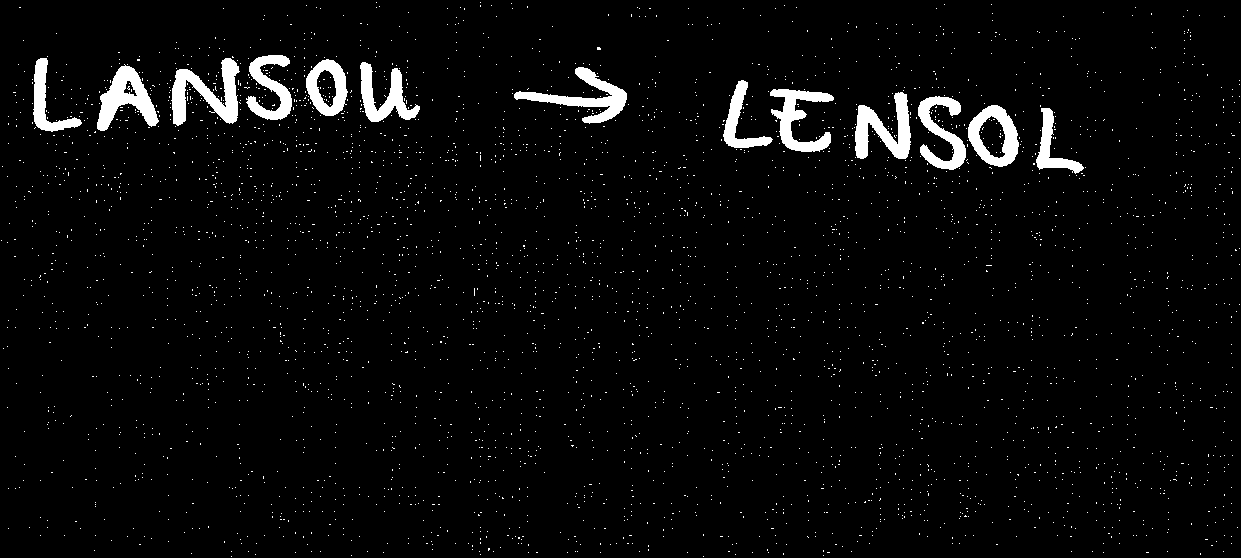 LANSOU → LENSOL